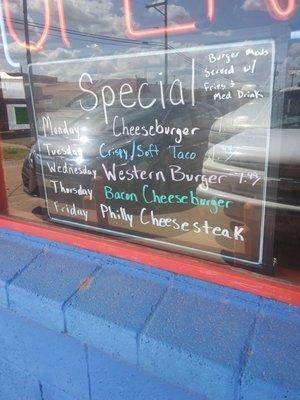 OPEN
Burger meals
Served w/
Fries &
Med Drink
Special
Monday Cheeseburger
Tuesday Crispy/Soft Taco
Wednesday Western Burger
Thursday Bacon Cheeseburger
Friday Philly Cheesesteak